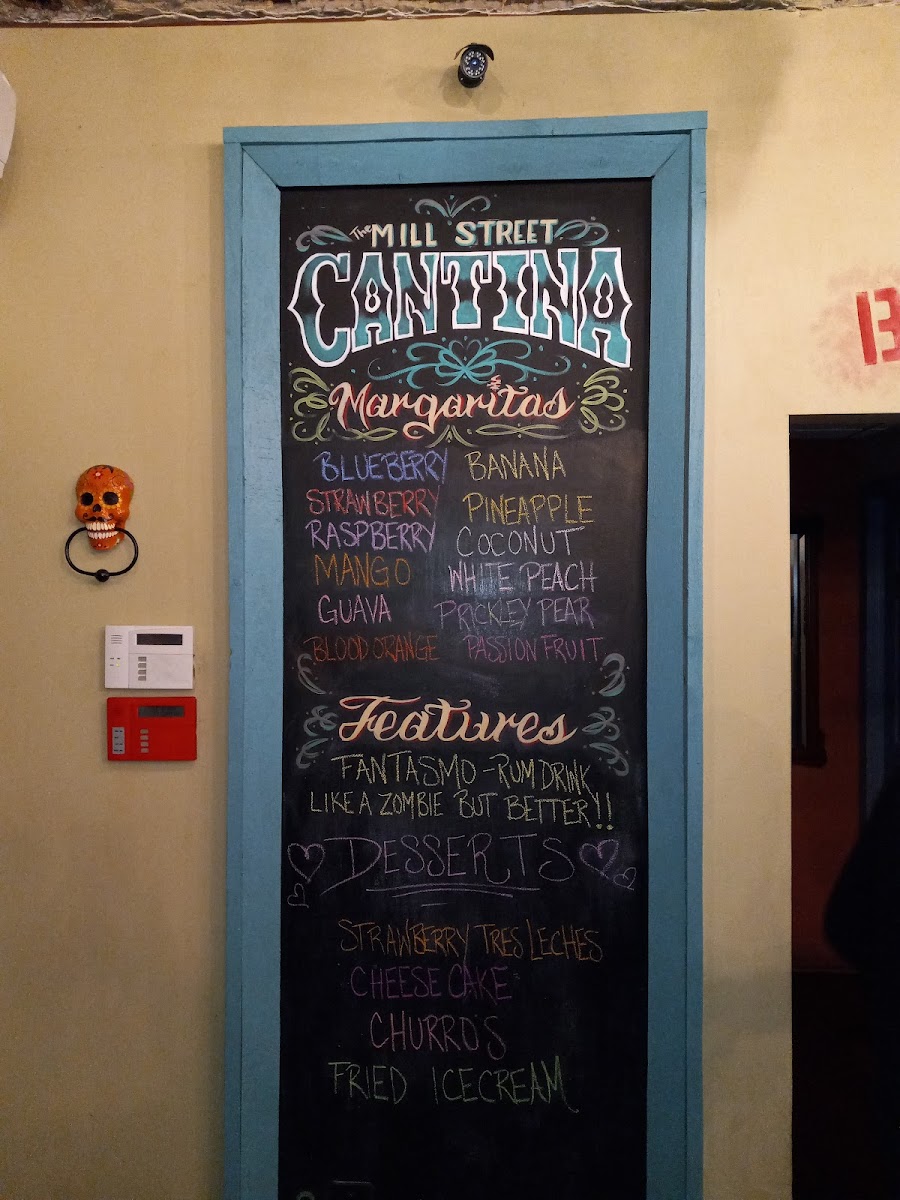 The MILL STREET
CANTINA
Margaritas
BLUEBERRY BANANA
STRAWBERRY PINEAPPLE
RASPBERRY COCONUT
MANGO WHITE PEACH
GUAVA PRICKLEY PEAR
BLOOD ORANGE PASSION FRUIT
Features
FANTASMO - RUM DRINK
LIKE A ZOMBIE BUT BETTER!!
DESSERTS
STRAWBERRY TRES LECHES
CHEESE CAKE
CHURRO'S
FRIED ICECREAM